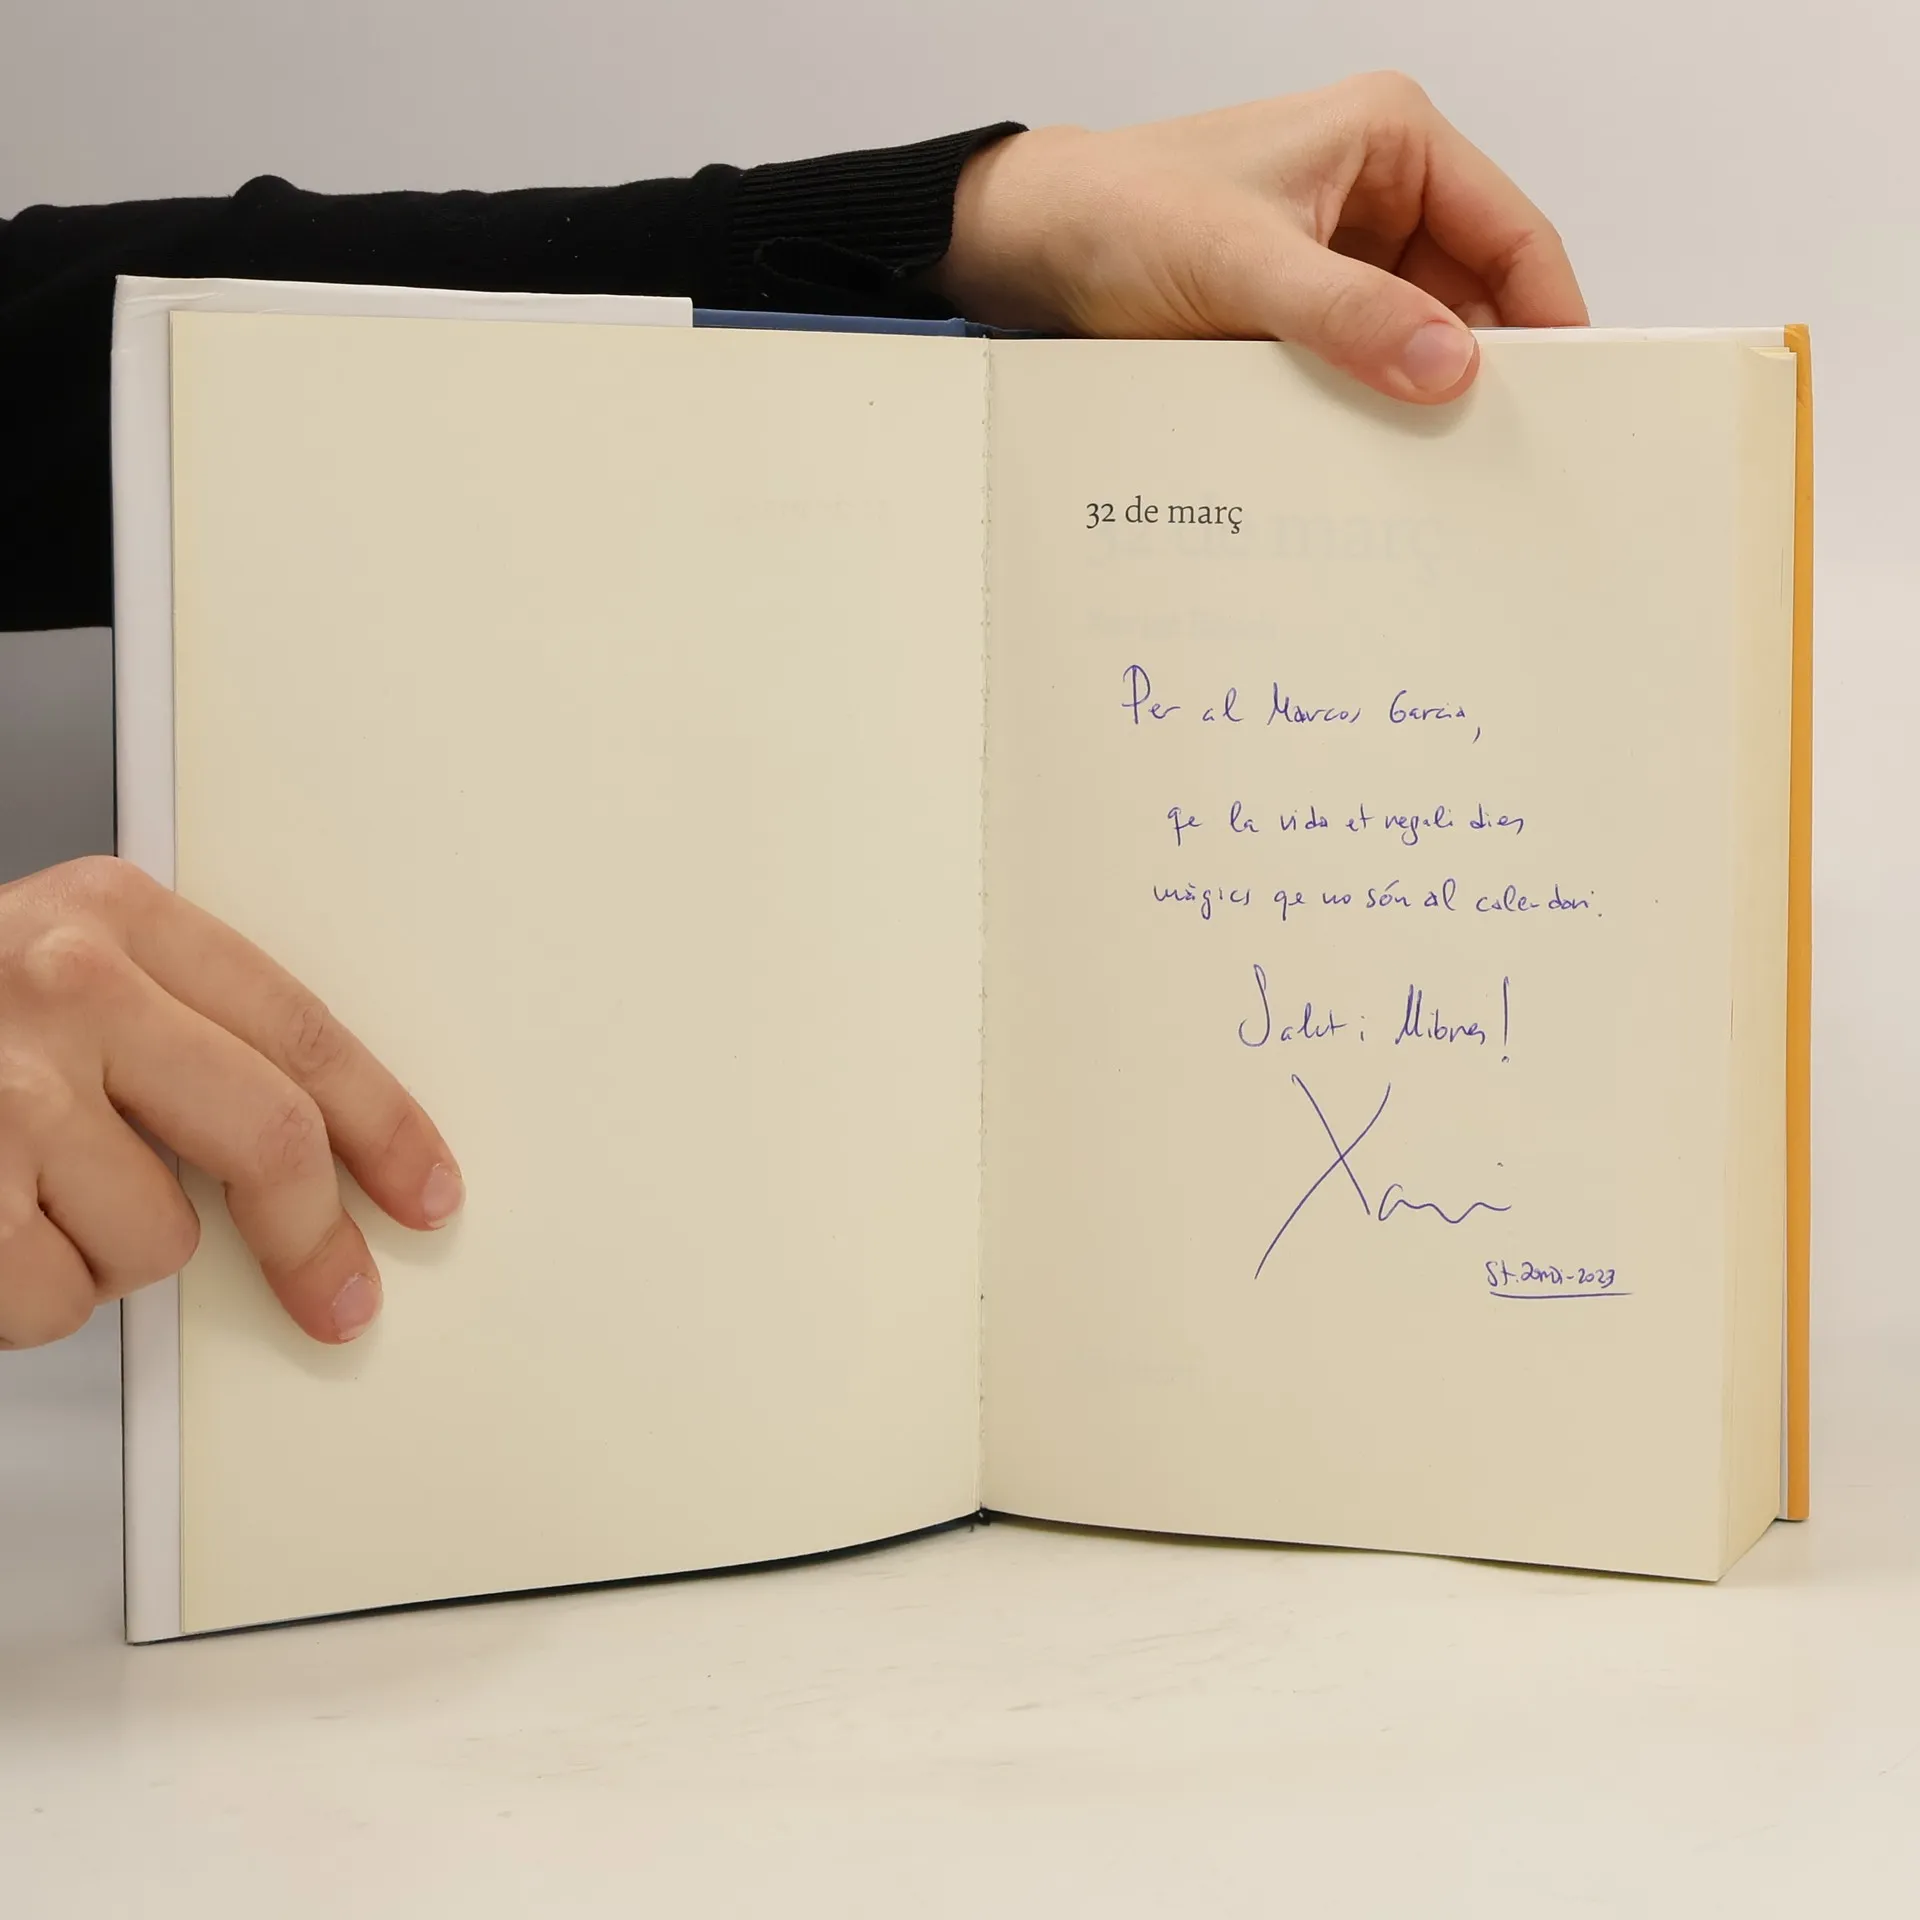 32 de març
Per al Marcos Garcia,
qe la vida et regali dies
màgics qe no són al calendari.
Salut i llibres!
Xavi
St. Jordi-2023